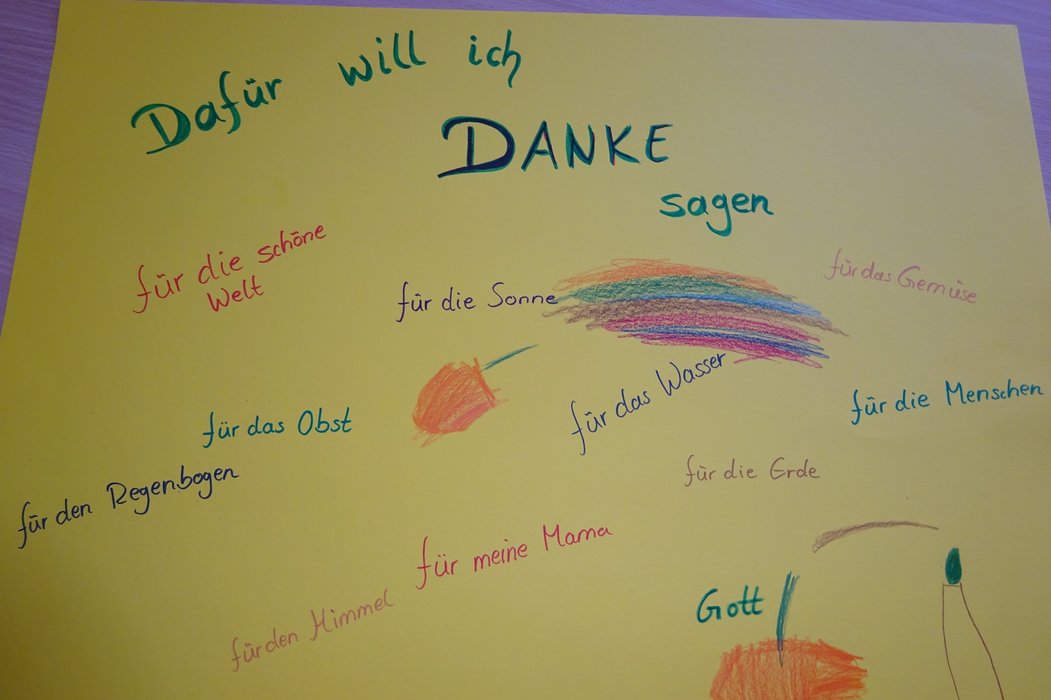 Dafür will ich
DANKE
sagen
für die schöne
Welt
für die Sonne
für das Gemüse
für das Obst
für das Wasser
für die Menschen
für den Regenbogen
für die Erde
für meine Mama
für den Himmel
Gott